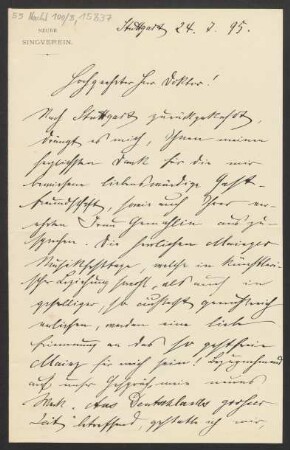 55 Nachl 100/B, 15837
NEUER
SINGVEREIN.
Stuttgart 24. 7. 95.
Hochgeehrter Herr Doktor!
Nach Stuttgart zurückgekehrt,
drängt es mich, Ihnen meinen
herzlichsten Dank für die mir
bewiesene liebenswürdige Gast-
freundschaft, sowie auch Ihrer ver-
ehrten Frau Gemahlin auszu-
sprechen. Die herrlichen Mainzer
Musikfesttage, welche in künstleri-
scher Beziehung sowohl, als auch in
geselliger, so äußerst genußreich
verliefen, werden eine liebe
Erinnerung an das so gastfreie
Mainz für mich sein! Bezugnehmend
auf unser Gespräch, mein neues
Werk „Aus Deutschlands großer
Zeit" betreffend, gestatte ich mir,